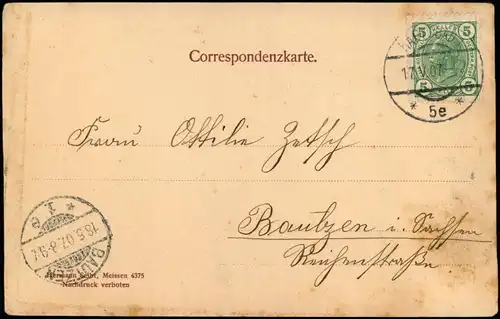 Correspondenzkarte.
5 HELLER 5
17.V.07
* 5e *
5 5
Frau Ottilie Zetsch
Bautzen i. Sachsen
Reichenstraße.
* 1 e
18.5.07. 8-9V.
BAUTZEN
Hermann Seibt, Meissen 4375
Nachdruck verboten